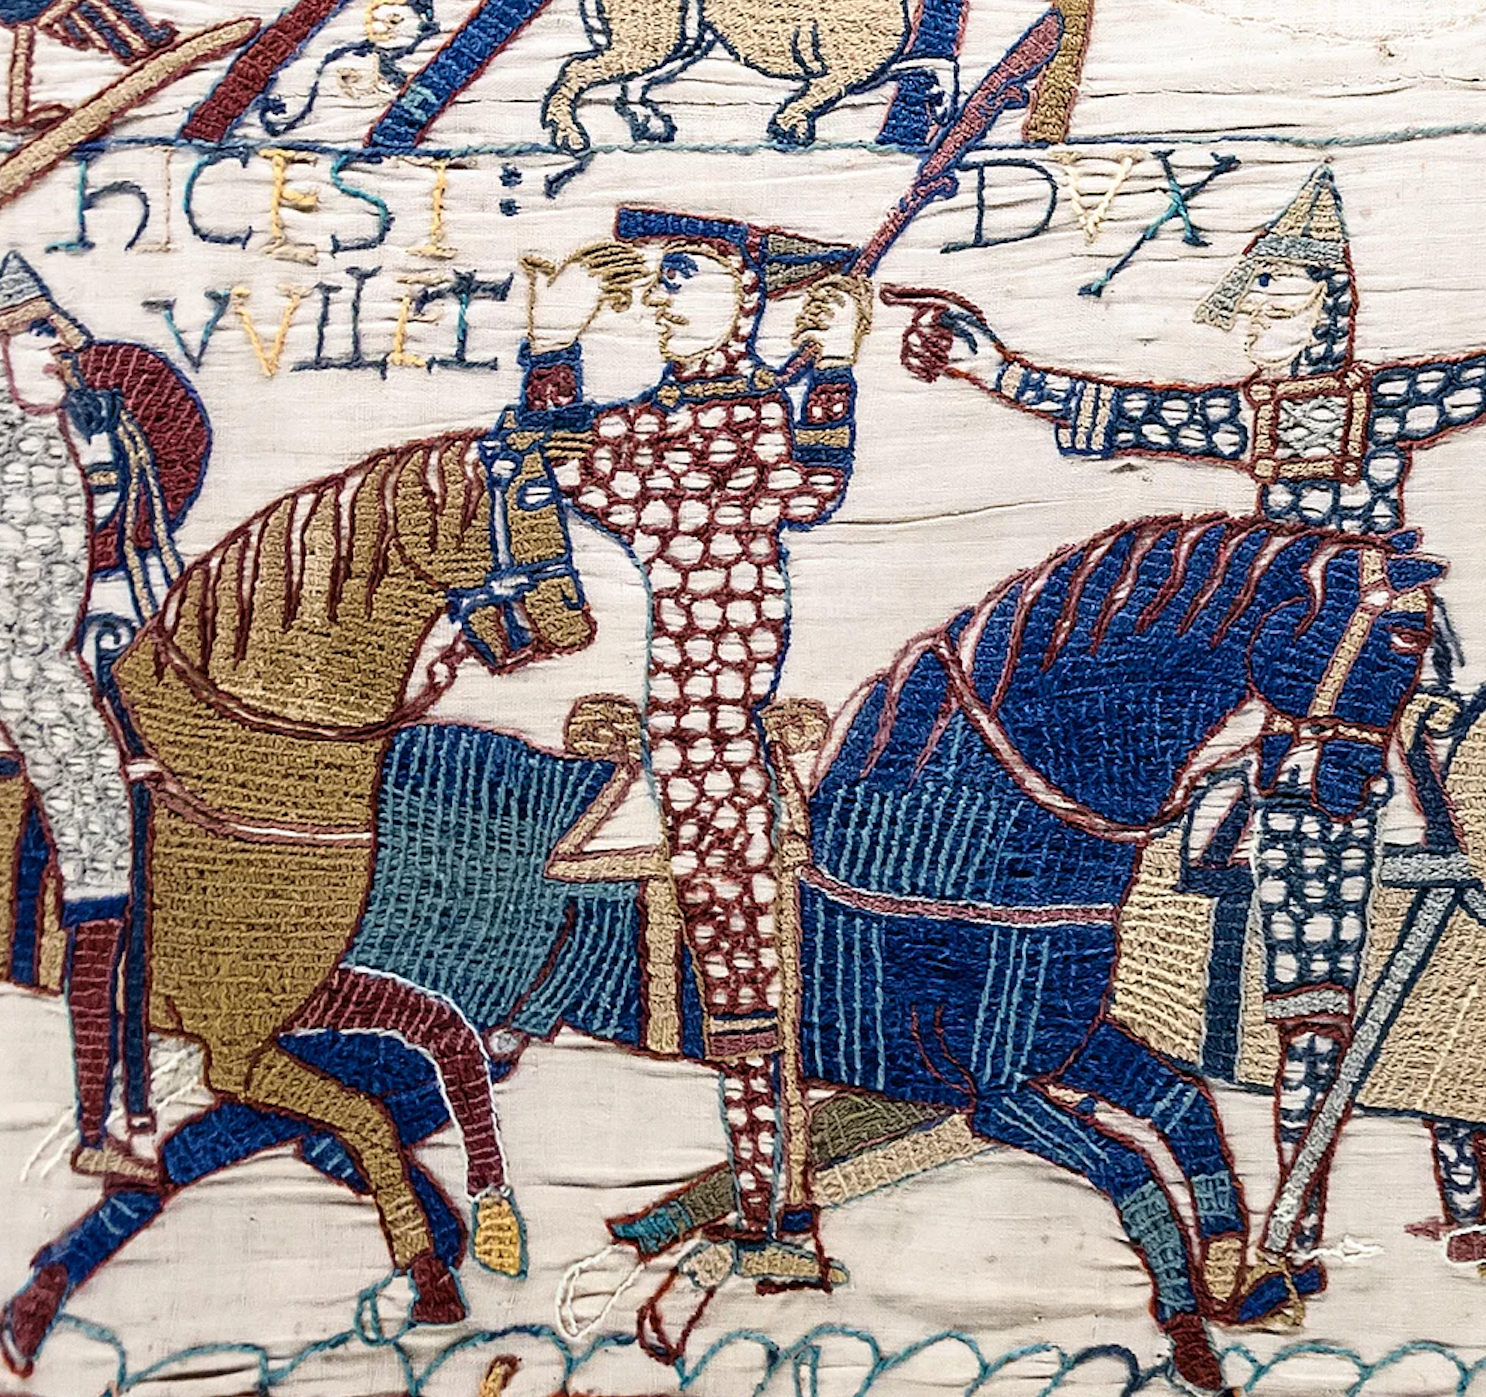 hIC EST : DVX
VVILLET